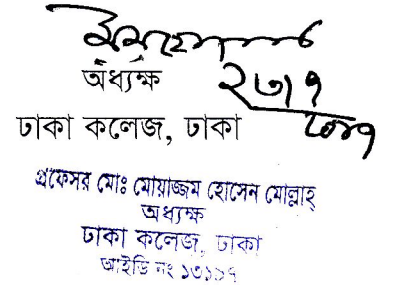 অধ্যক্ষ
ঢাকা কলেজ, ঢাকা
প্রফেসর মোঃ মোয়াজ্জম হোসেন মোল্লাহ্
অধ্যক্ষ
ঢাকা কলেজ, ঢাকা
আইডি নং